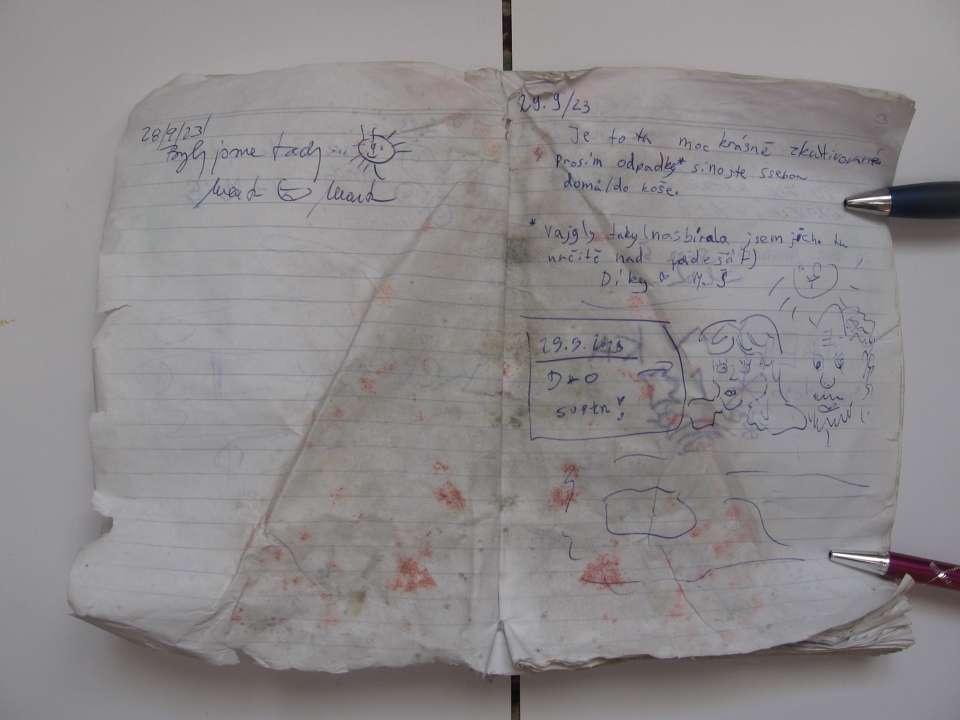 28/9/23/
Byli jsme tady ...
29.9/23
Je to tu moc krásně zkultivované
Prosím odpadky* sinoste ssebou
domů/do koše.
* Vajgly taky (nasbírala jsem jich tu
určitě nad padesát)
Díky
29.9.